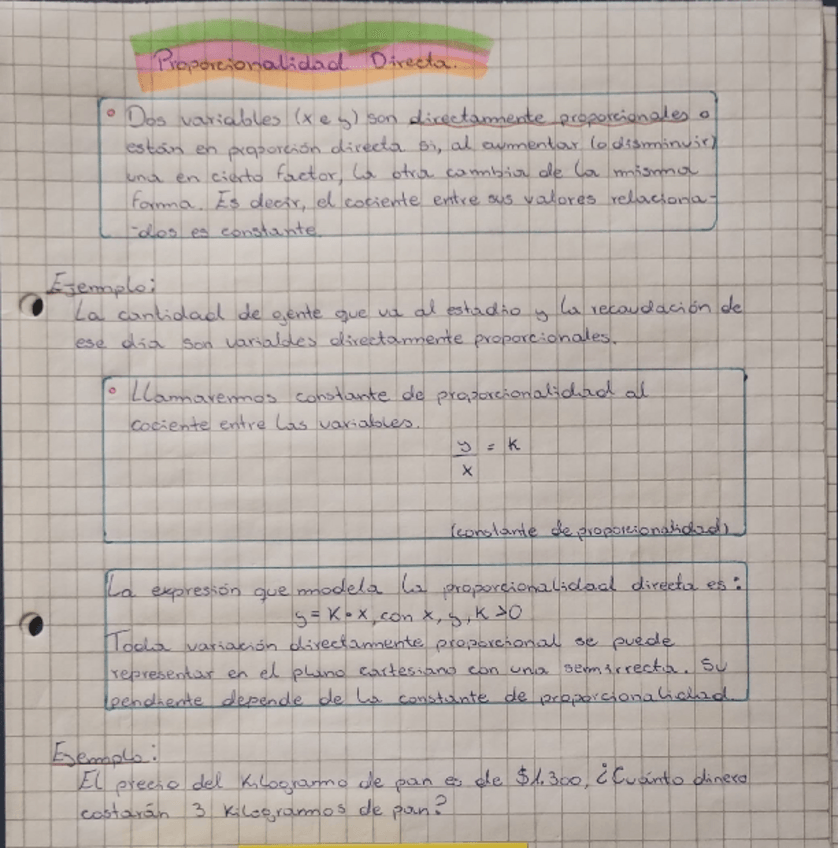 Proporcionalidad Directa.
• Dos variables (x e y) son directamente proporcionales o
están en proporción directa si, al aumentar (o disminuir)
una en cierto factor, la otra cambia de la misma
forma. Es decir, el cociente entre sus valores relaciona-
-dos es constante.
Ejemplo:
La cantidad de gente que va al estadio y la recaudación de
ese día son variables directamente proporcionales.
• Llamaremos constante de proporcionalidad al
cociente entre las variables.
y/x = K
(constante de proporcionalidad)
La expresión que modela la proporcionalidad directa es:
y = K • x, con x, y, K > 0
Toda variación directamente proporcional se puede
representar en el plano cartesiano con una semirrecta. Su
pendiente depende de la constante de proporcionalidad.
Ejemplo:
El precio del Kilogramo de pan es de $1.300, ¿Cuánto dinero
costarán 3 Kilogramos de pan?